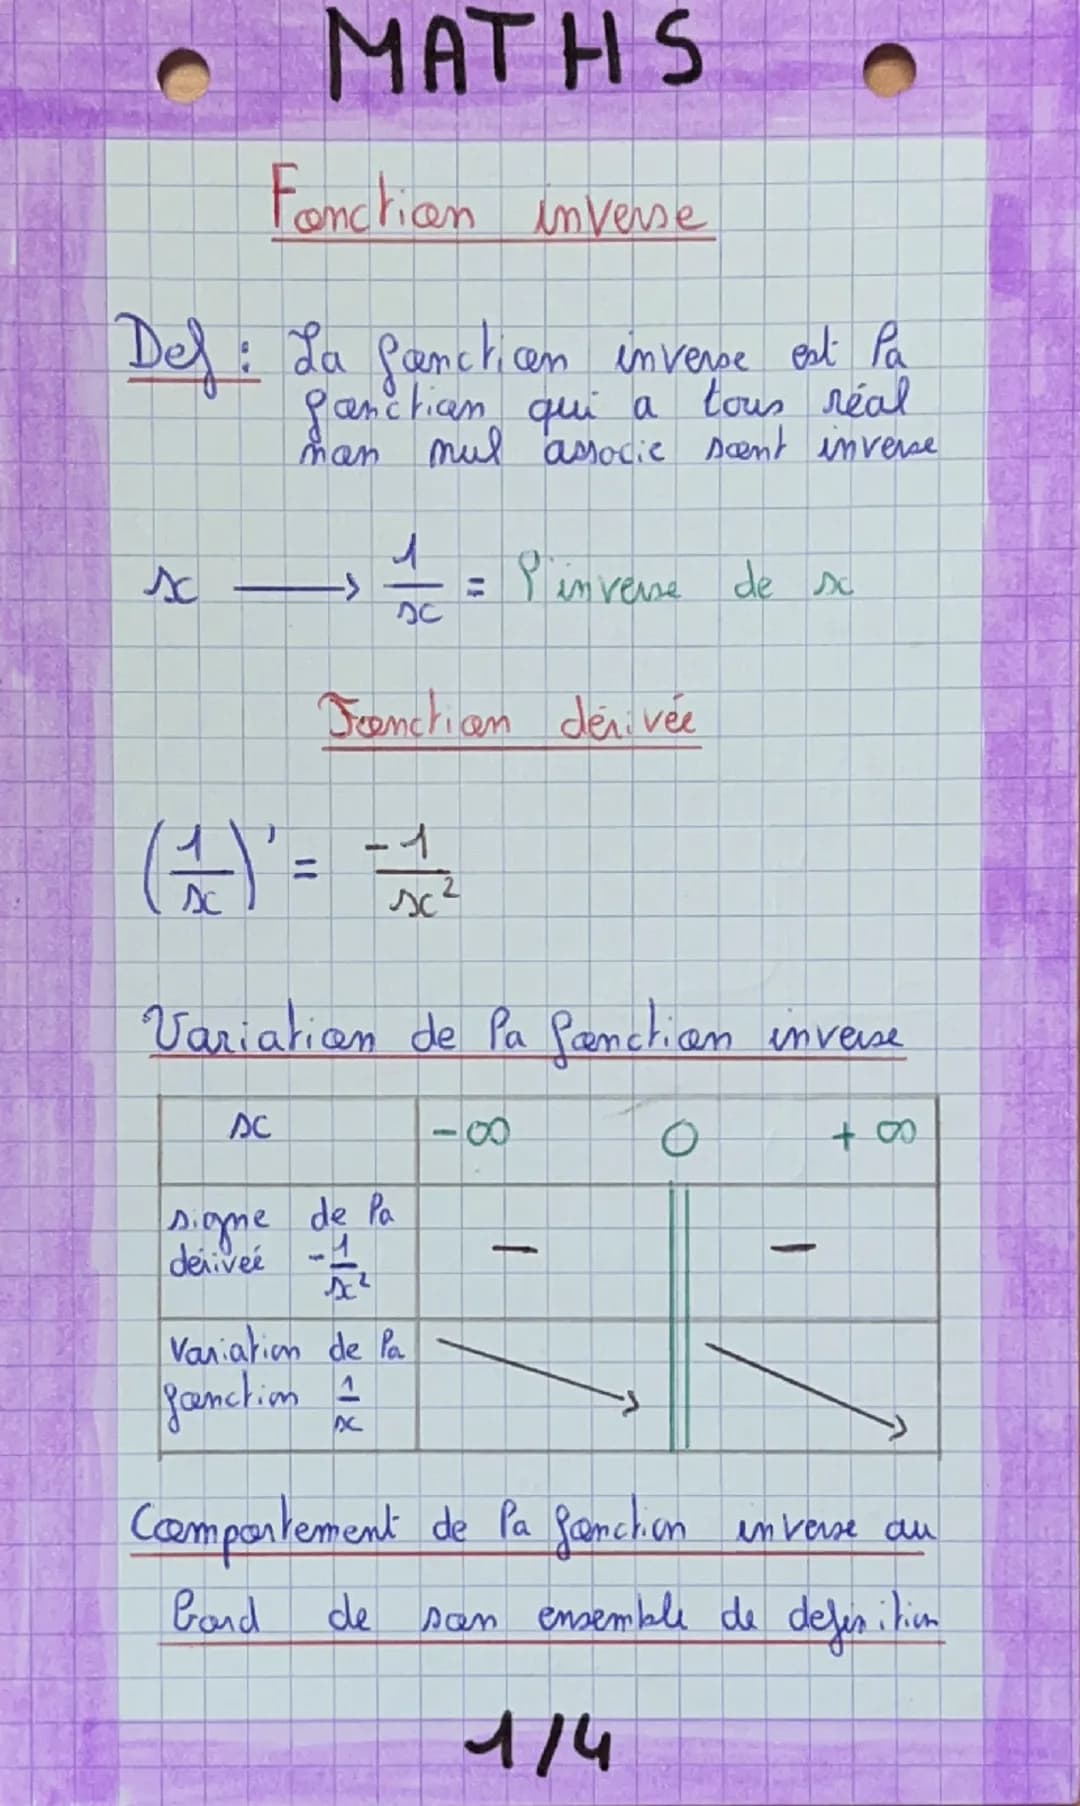 MATHS
Fonction inverse
Def : La fonction inverse est la
fonction qui a tous réal
non nul associe sont inverse
x ⟶ 1/x = l'inverse de x
Fonction dérivée
(1/x)' = -1/x²
Variation de la fonction inverse
x -∞ 0 + ∞
signe de la
dériveé -1/x² - -
Variation de la
fonction 1/x
Comportement de la fonction inverse au
bord de son ensemble de definition
1/4